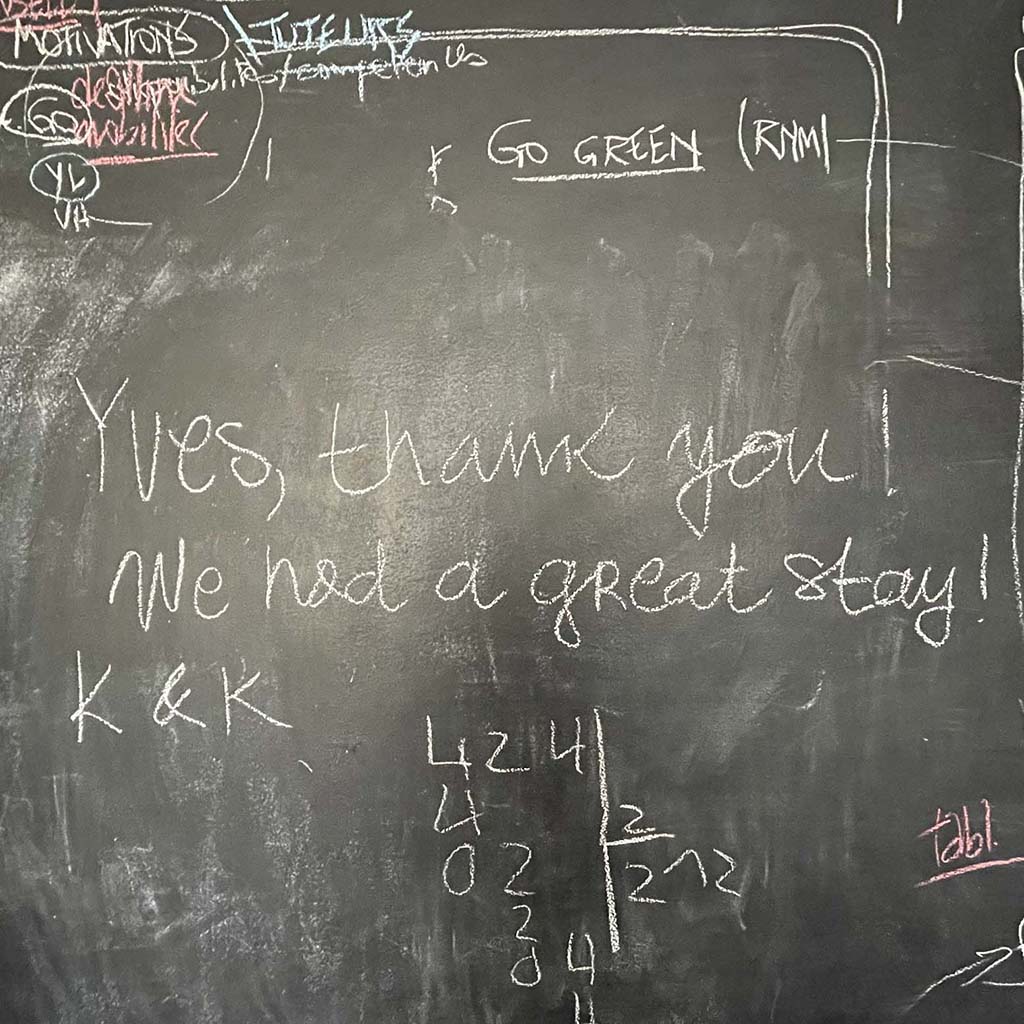 MOTIVATIONS
TUTEURS
GO
YL
VH
GO GREEN (RNM)
Yves, thank you!
We had a great stay!
K & K
424
4 2
02 212
2
04
4
tabl.